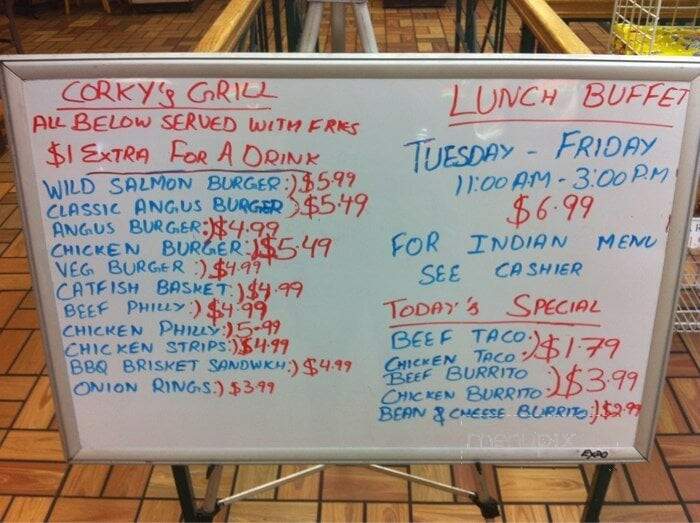 CORKY's GRILL
ALL BELOW SERVED WITH FRIES
$1 EXTRA FOR A DRINK
WILD SALMON BURGER:) $5.99
CLASSIC ANGUS BURGER) $5.49
ANGUS BURGER:) $4.99
CHICKEN BURGER:) $5.49
VEG BURGER :) $4.99
CATFISH BASKET:) $4.99
BEEF PHILLY:) $4.99
CHICKEN PHILLY:) 5.99
CHICKEN STRIPS:) $4.99
BBQ BRISKET SANDWICH:) $4.99
ONION RINGS:) $3.99
LUNCH BUFFET
TUESDAY - FRIDAY
11:00 AM - 3:00 P.M
$6.99
FOR INDIAN MENU
SEE CASHIER
TODAY'S SPECIAL
BEEF TACO:) $1.79
CHICKEN TACO:)
BEEF BURRITO
CHICKEN BURRITO:) $3.99
BEAN & CHEESE BURRITO:) $2.99
menupix
EXPO